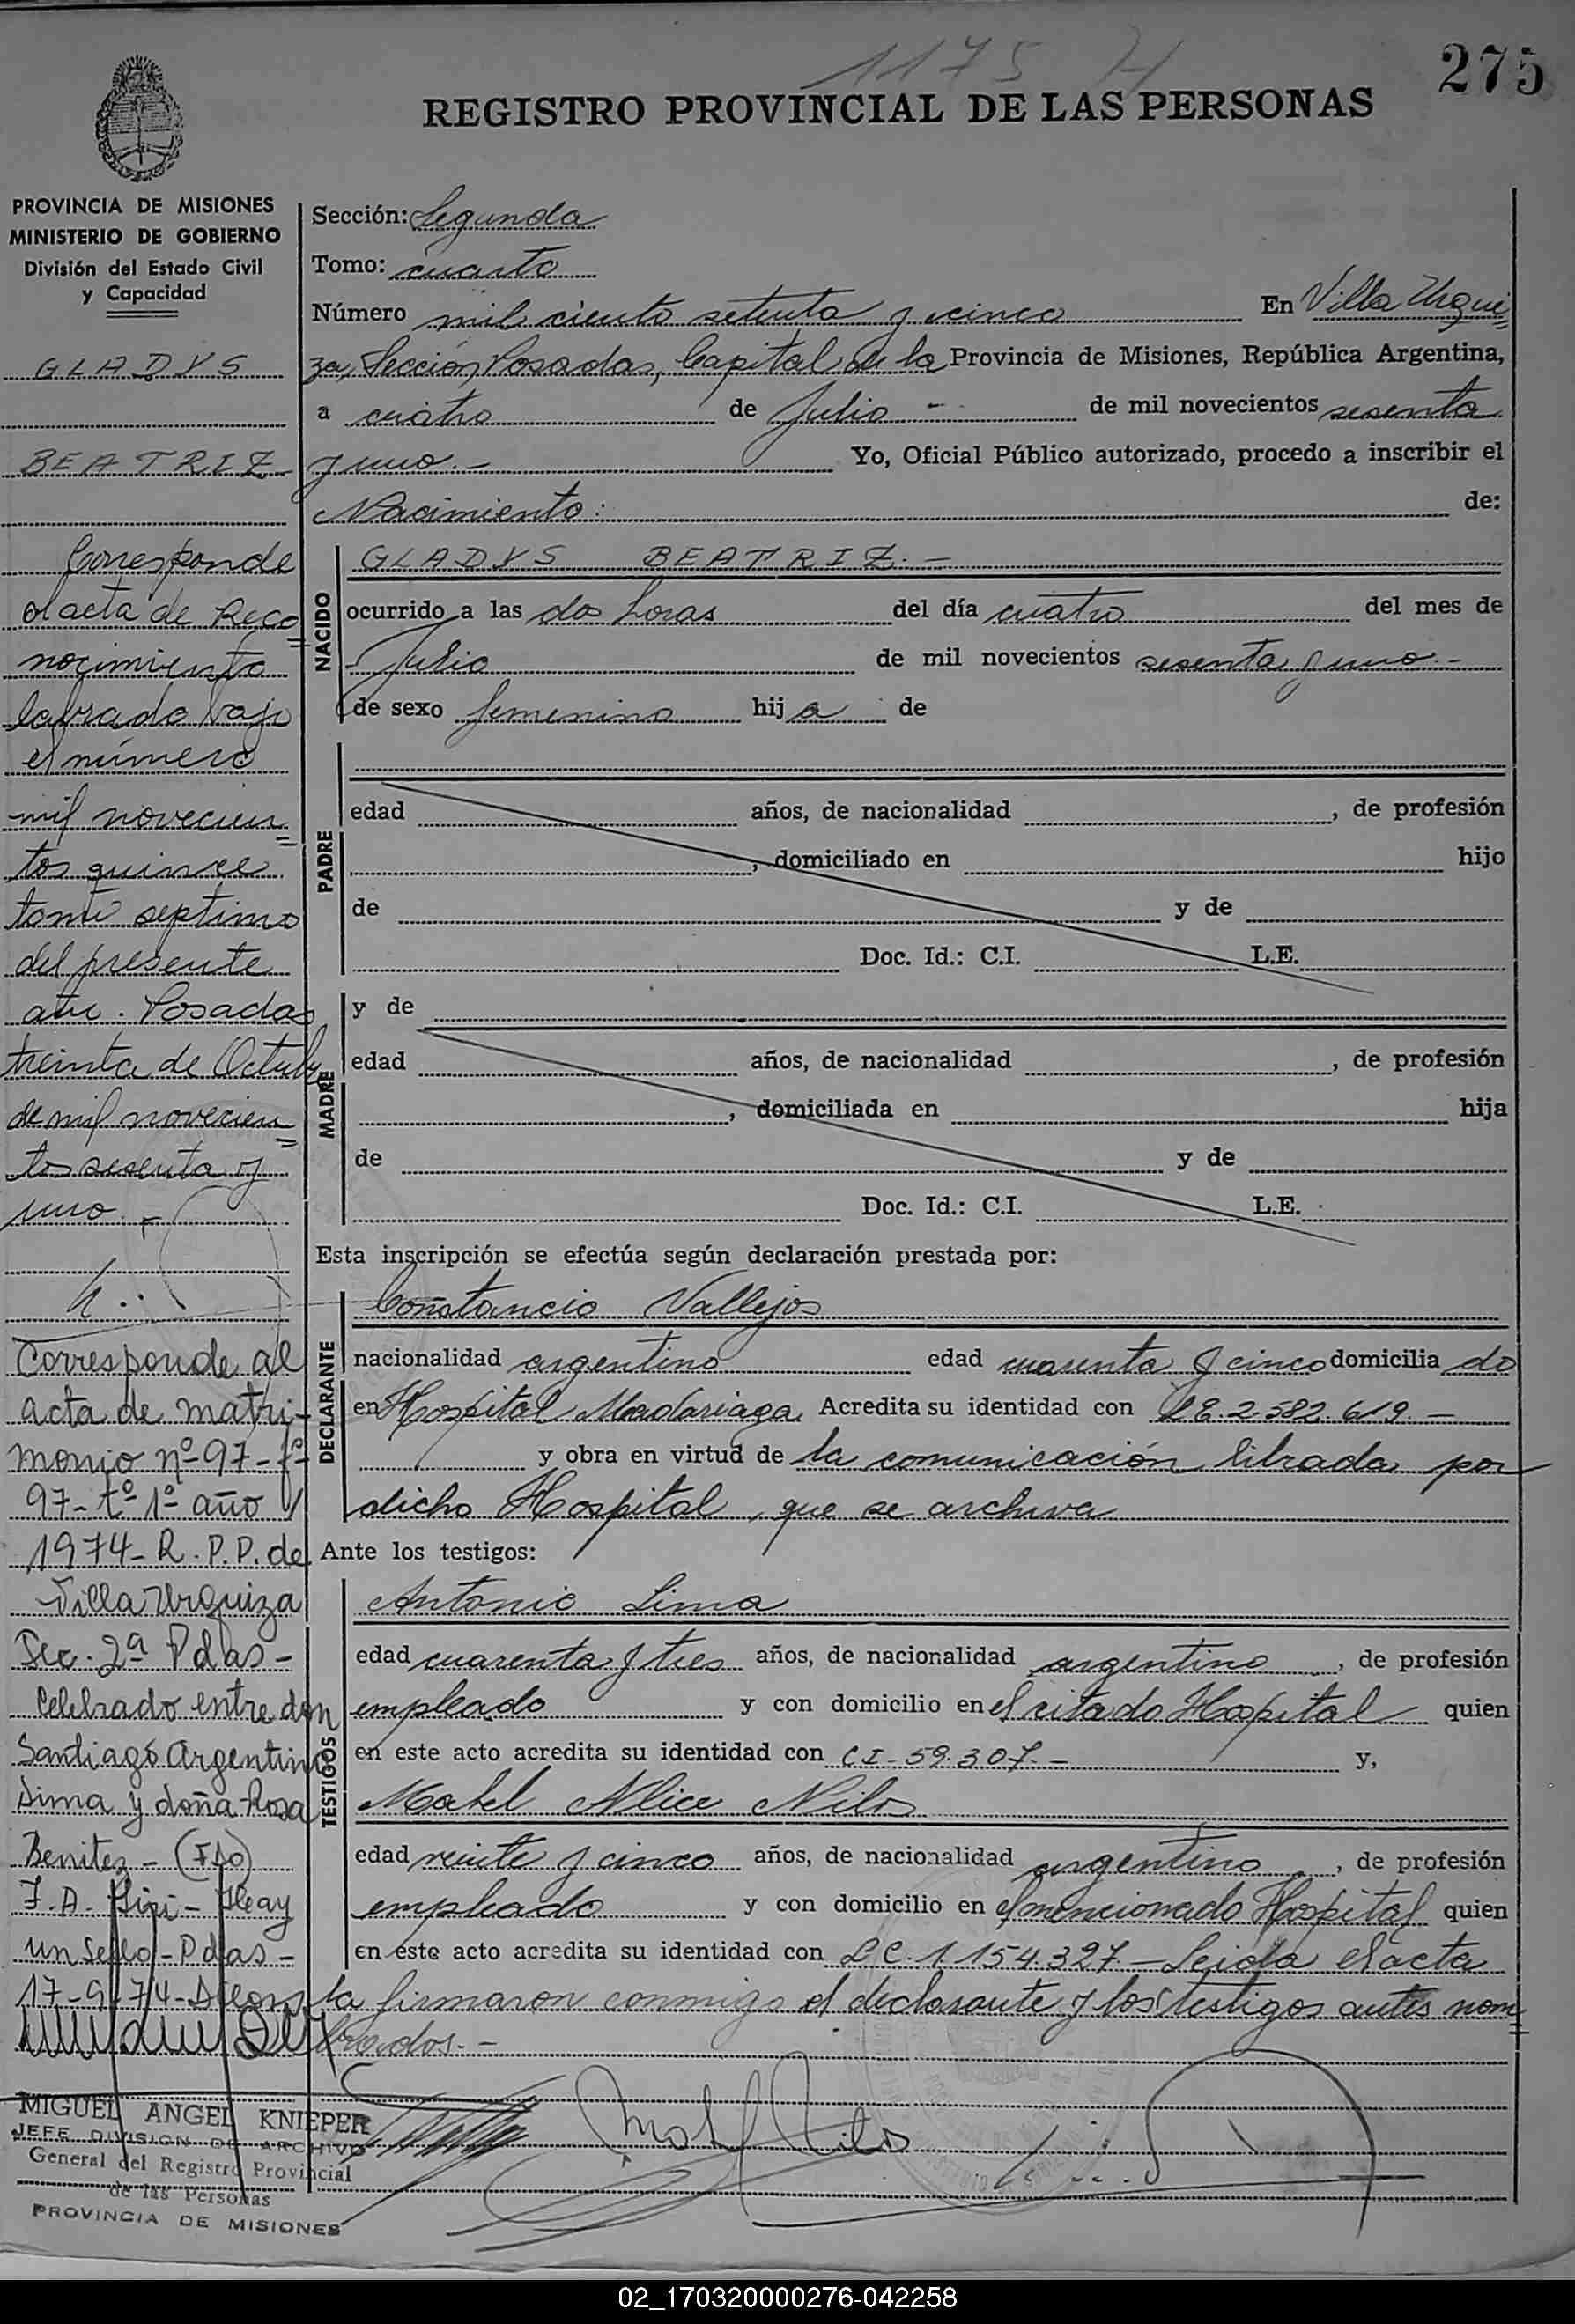 1175 H
275
REGISTRO PROVINCIAL DE LAS PERSONAS
PROVINCIA DE MISIONES
MINISTERIO DE GOBIERNO
División del Estado Civil
y Capacidad
GLADYS
BEATRIZ
Corresponde
al acta de Reco=
nocimiento
labrado bajo
el número
mil novecien=
tos quince
tomo septimo
del presente
año. Posadas
treinta de Octubre
de mil novecien=
tos sesenta y
uno.-
Corresponde al
acta de matri-
monio nº 97-fº
97-tº 1º año
1974-R.P.P. de
Villa Urquiza
Sec. 2ª Pdas-
Celebrado entre don
Santiago Argentino
Lima y doña Rosa
Benitez-(FDO)
J.A. Pipi- Hay
un Sello-Pdas-
17-9-74-
MIGUEL ANGEL KNIEPER
JEFE DIVISION DE ARCHIVO
General del Registro Provincial
de las Personas
PROVINCIA DE MISIONES
Sección: Segunda
Tomo: cuarto
Número mil ciento setenta y cinco En Villa Urqui=
za, Sección Posadas, Capital de la Provincia de Misiones, República Argentina,
a cuatro de Julio - de mil novecientos sesenta
y uno.- Yo, Oficial Público autorizado, procedo a inscribir el
Nacimiento: de:
NACIDO
GLADYS BEATRIZ.-
ocurrido a las dos horas del día cuatro del mes de
Julio de mil novecientos sesenta y uno.-
de sexo femenino hija de
PADRE
edad años, de nacionalidad , de profesión
, domiciliado en hijo
de y de
Doc. Id.: C.I. L.E.
MADRE
y de
edad años, de nacionalidad , de profesión
, domiciliada en hija
de y de
Doc. Id.: C.I. L.E.
Esta inscripción se efectúa según declaración prestada por:
DECLARANTE
Constancio Vallejos
nacionalidad argentino edad cuarenta y cinco domicilia do
en Hospital Madariaga Acredita su identidad con LE.2.582.619.-
y obra en virtud de la comunicación librada por
dicho Hospital, que se archiva
Ante los testigos:
TESTIGOS
Antonio Lima
edad cuarenta y tres años, de nacionalidad argentino , de profesión
empleado y con domicilio en el citado Hospital quien
en este acto acredita su identidad con CI-59.307.- y,
Mabel Alice Nilos
edad veinte y cinco años, de nacionalidad argentino , de profesión
empleado y con domicilio en el mencionado Hospital quien
en este acto acredita su identidad con LC.1.154.327.-Leida el acta
la firmaron conmigo el declarante y los testigos antes nom=
brados.-
02_170320000276-042258